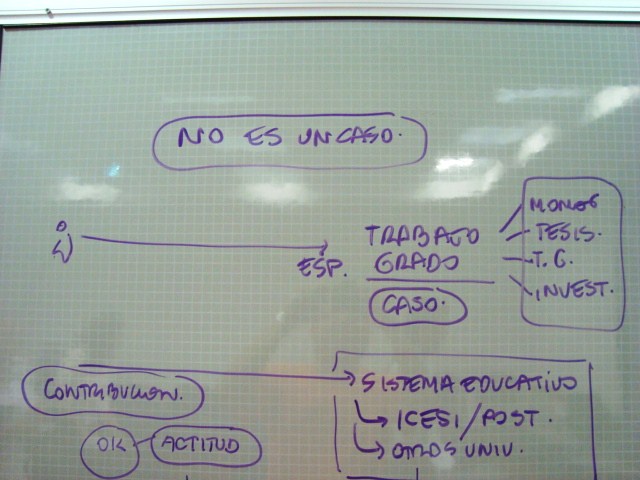 NO ES UN CASO.
TRABAJO
GRADO
ESP.
CASO.
MONOG
TESIS.
T.G.
INVEST.
CONTRIBUCION.
OK
ACTITUD
SISTEMA EDUCATIVO
ICESI/POST.
OTROS UNIV.